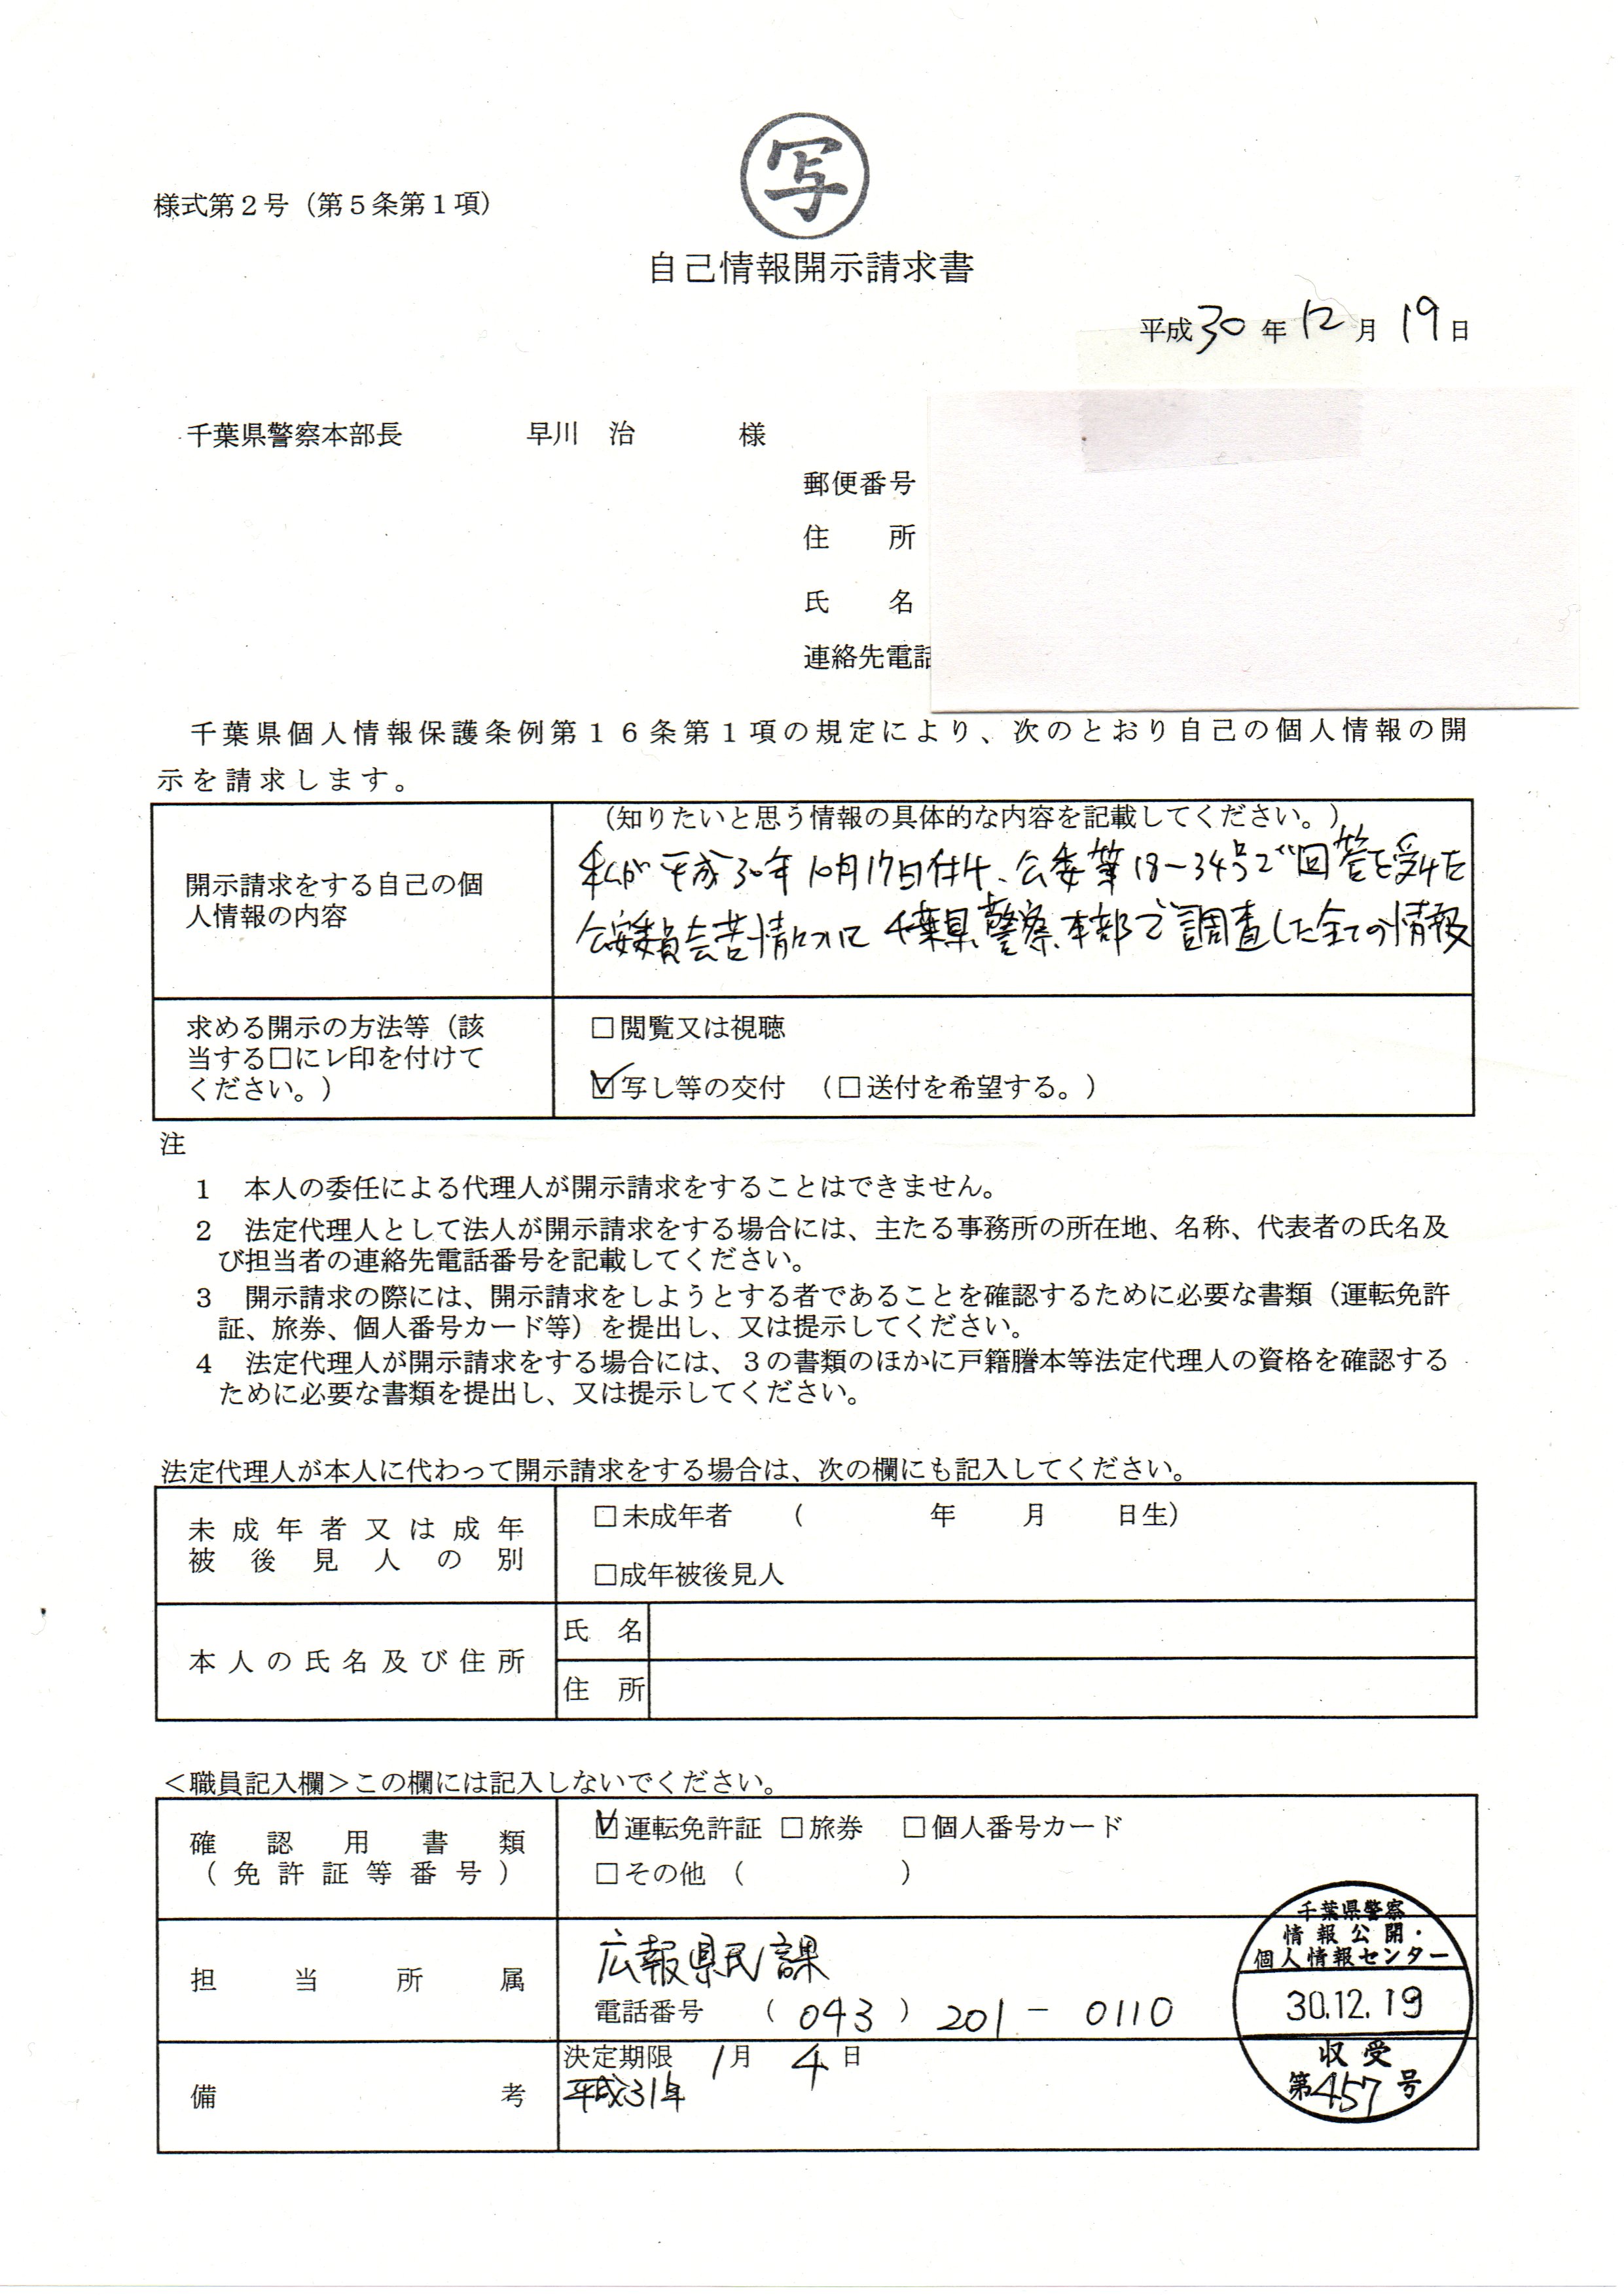 写
様式第２号（第５条第１項）
自己情報開示請求書
平成30年12月19日
千葉県警察本部長　早川　治　様
郵便番号
住　所
氏　名
連絡先電話
千葉県個人情報保護条例第１６条第１項の規定により、次のとおり自己の個人情報の開
示を請求します。
開示請求をする自己の個
人情報の内容
（知りたいと思う情報の具体的な内容を記載してください。）
私が平成30年10月17日付け、公委第18－34号で回答を受けた
公安委員会苦情について千葉県警察本部で調査した全ての情報
求める開示の方法等（該
当する□にレ印を付けて
ください。）
□閲覧又は視聴
☑写し等の交付　（□送付を希望する。）
注
１　本人の委任による代理人が開示請求をすることはできません。
２　法定代理人として法人が開示請求をする場合には、主たる事務所の所在地、名称、代表者の氏名及
び担当者の連絡先電話番号を記載してください。
３　開示請求の際には、開示請求をしようとする者であることを確認するために必要な書類（運転免許
証、旅券、個人番号カード等）を提出し、又は提示してください。
４　法定代理人が開示請求をする場合には、３の書類のほかに戸籍謄本等法定代理人の資格を確認する
ために必要な書類を提出し、又は提示してください。
法定代理人が本人に代わって開示請求をする場合は、次の欄にも記入してください。
未成年者又は成年
被後見人の別
□未成年者　（　年　月　日生）
□成年被後見人
本人の氏名及び住所
氏　名
住　所
＜職員記入欄＞この欄には記入しないでください。
確認用書類
（免許証等番号）
☑運転免許証　□旅券　□個人番号カード
□その他（　）
担当所属
広報県民課
電話番号　（043）201－0110
備考
決定期限　1月　4日
平成31年
千葉県警察
情報公開・
個人情報センター
30.12.19
収受
第457号